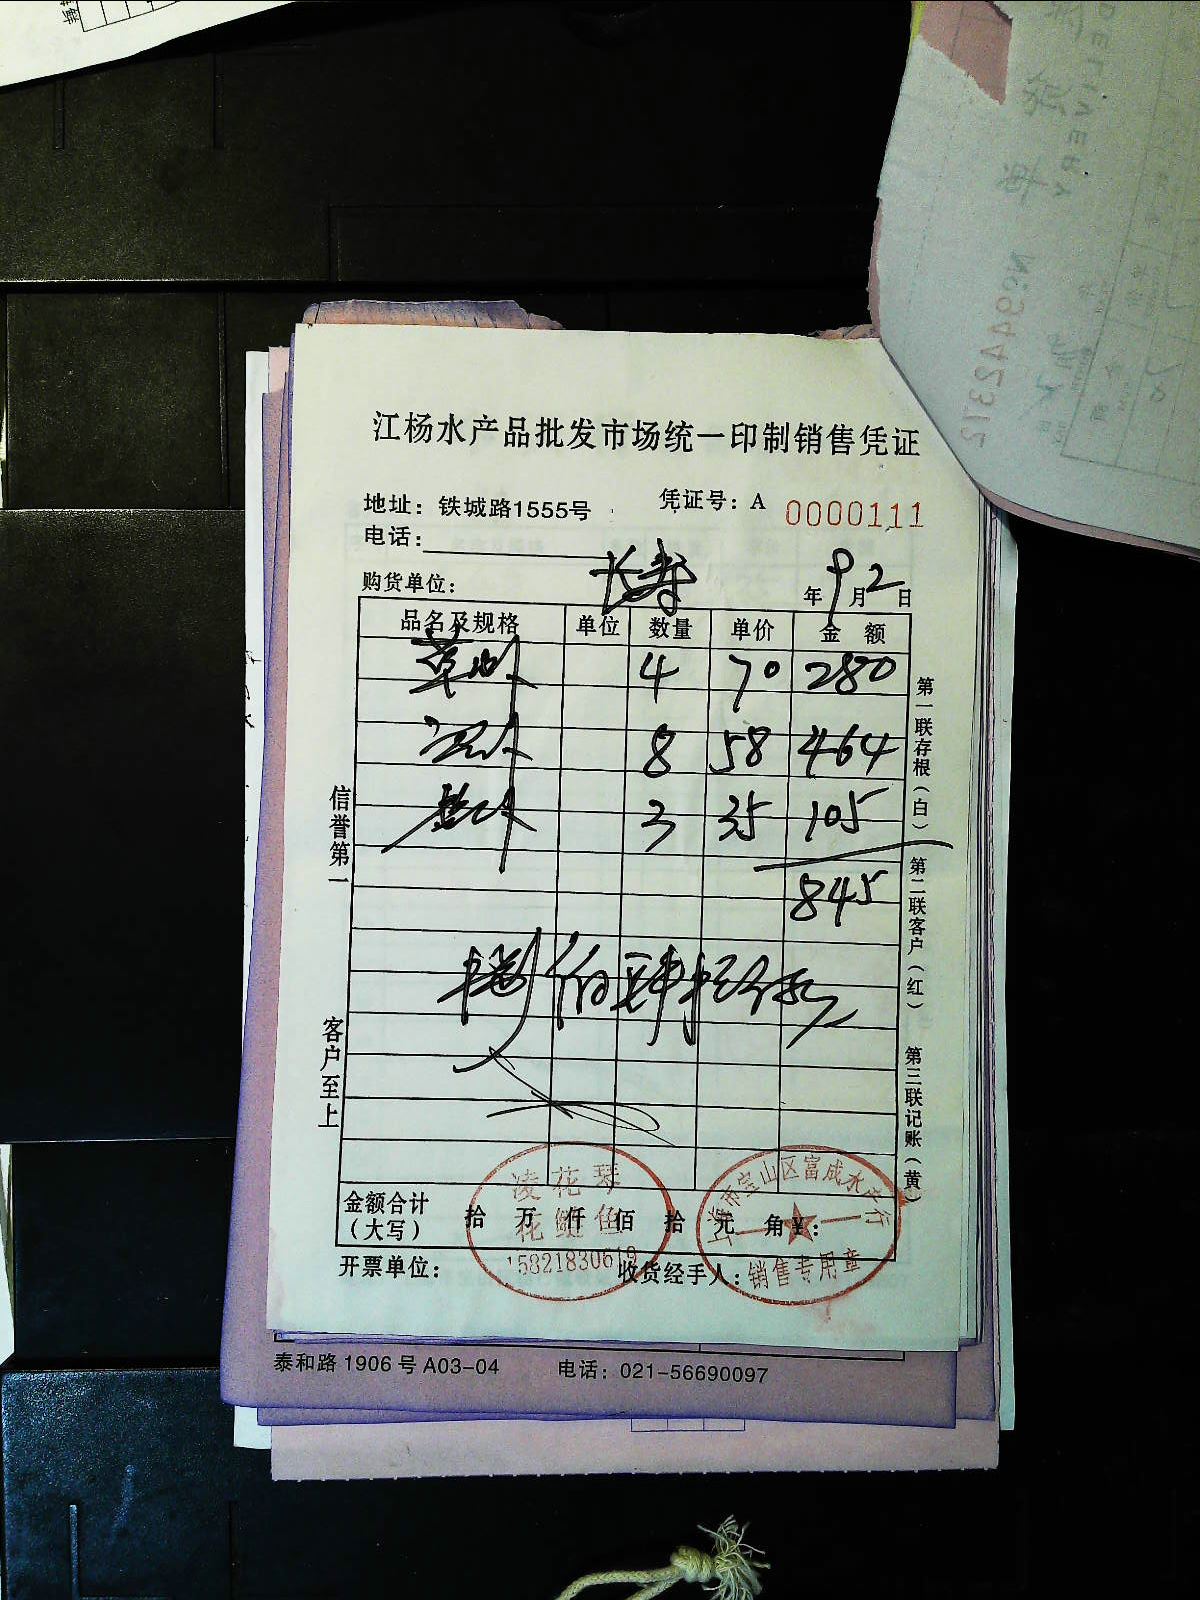 江杨水产品批发市场统一印制销售凭证
地址：铁城路1555号 凭证号：A 0000111
电话：
购货单位： 长寿 年 9 月 2 日
品名及规格 单位 数量 单价 金额
4 70 280
8 58 464
3 35 105
845
捌佰肆拾伍
信誉第一
客户至上
第一联存根（白）
第二联客户（红）
第三联记账（黄）
金额合计（大写） 拾 万 仟 佰 拾 元 角 ¥：
开票单位： 收货经手人：
凌花琴
花鲢鱼
15821830619
上海市宝山区富成水产行
销售专用章
泰和路1906号A03-04 电话：021-56690097
DELIVERY
No 9442312